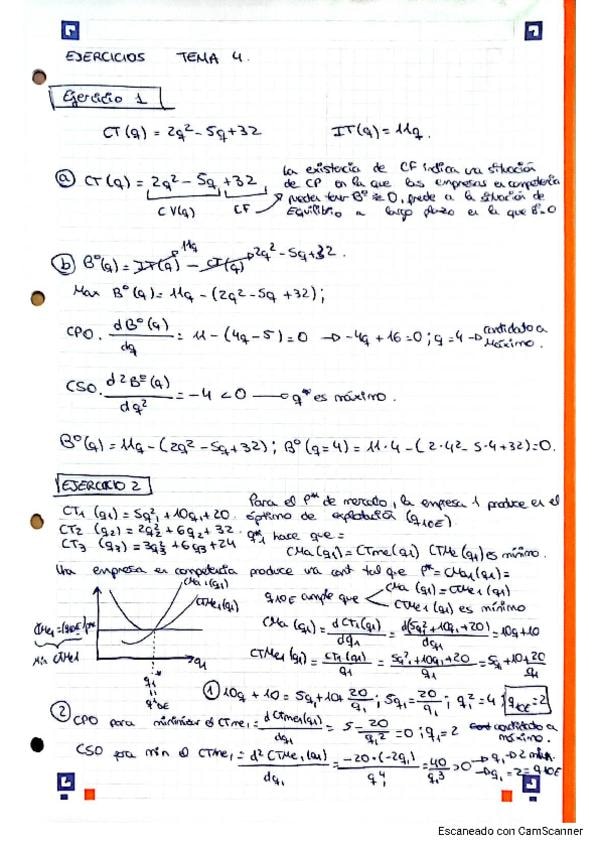 EJERCICIOS TEMA 4.
Ejercicio 1
CT(q) = 2q² - 5q + 32 IT(q) = 11q.
a) CT(q) = 2q² - 5q + 32
CV(q) CF
La existencia de CF indica una situación
de CP en la que las empresas en competencia
pueden tener Bº ≠ 0, previa a la situación de
Equilibrio a largo plazo en la que Bº=0
b) Bº(q) = IT(q) - CT(q) 11q 2q² - 5q + 32.
Max Bº(q) = 11q - (2q² - 5q + 32);
CPO. dBº(q)/dq = 11 - (4q - 5) = 0 → -4q + 16 = 0; q = 4 → candidato a máximo.
CSO. d²Bº(q)/dq² = -4 < 0 → q* es máximo.
Bº(q) = 11q - (2q² - 5q + 32); Bº(q=4) = 11·4 - (2·4² - 5·4 + 32) = 0.
EJERCICIO 2
CT1 (q1) = 5q1² + 10q1 + 20.
CT2 (q2) = 2q2² + 6q2 + 32.
CT3 (q3) = 3q3² + 6q3 + 24
Para el P** de mercado, la empresa 1 produce en el
óptimo de explotación (q1OE)
q1* hace que =
CMa(q1) = CTme(q1) CTMe(q1) es mínimo.
Una empresa en competencia produce una cant tal que P* = CMa1(q1) =
CMa1(q1)
CTMe1(q1)
Min CTMe1
q1
q1* q1OE
q1OE cumple que CMa(q1) = CTMe1(q1)
CTMe1(q1) es mínimo
CMa(q1) = dCT1(q1)/dq1 = d(5q1² + 10q1 + 20)/dq1 = 10q1 + 10
CTMe1(q1) = CT1(q1)/q1 = 5q1² + 10q1 + 20/q1 = 5q1 + 10 + 20/q1
1) 10q1 + 10 = 5q1 + 10 + 20/q1; 5q1 = 20/q1; q1² = 4; q1OE = 2
2) CPO para minimizar el CTme1 = dCTme1(q1)/dq1 = 5 - 20/q1² = 0; q1 = 2 candidato a máximo.
CSO para min el CTMe1 = d²CTMe1(q1)/dq1 = -20·(-2q1)/q1⁴ = 40/q1³ > 0 → q1 → 2 min.
→ q1 = 2 = q1OE
Escaneado con CamScanner